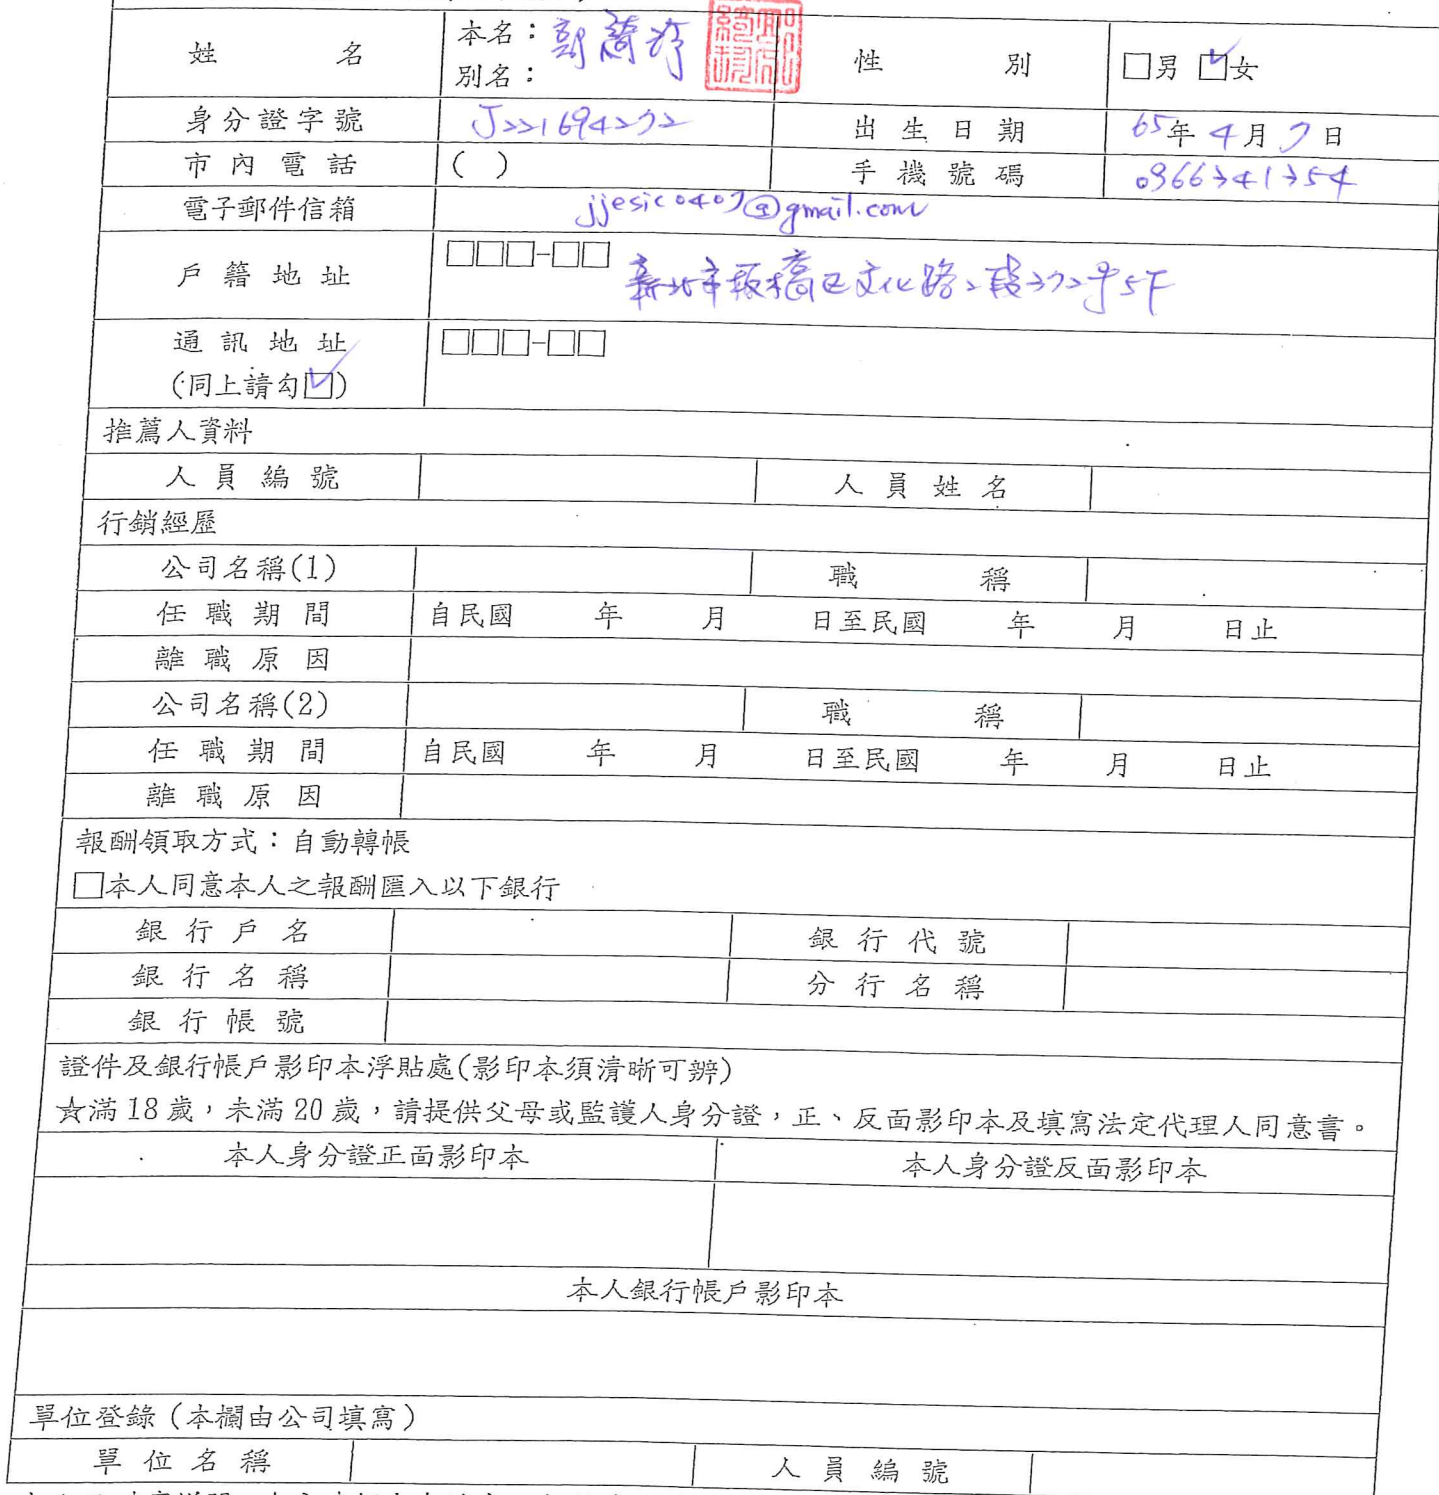 姓 名 本名：郭 性 別 □男 ☑女
別名：
身分證字號 J221694272 出生日期 65年4月7日
市內電話 ( ) 手機號碼 0966341354
電子郵件信箱 jjesic0407@gmail.com
戶籍地址 □□□-□□ 新北市板橋區文化路2段372号5F
通訊地址 □□□-□□
(同上請勾☑)
推薦人資料
人員編號 人員姓名
行銷經歷
公司名稱(1) 職 稱
任職期間 自民國 年 月 日至民國 年 月 日止
離職原因
公司名稱(2) 職 稱
任職期間 自民國 年 月 日至民國 年 月 日止
離職原因
報酬領取方式：自動轉帳
□本人同意本人之報酬匯入以下銀行
銀行戶名 銀行代號
銀行名稱 分行名稱
銀行帳號
證件及銀行帳戶影印本浮貼處(影印本須清晰可辨)
☆滿18歲，未滿20歲，請提供父母或監護人身分證，正、反面影印本及填寫法定代理人同意書。
本人身分證正面影印本 本人身分證反面影印本
本人銀行帳戶影印本
單位登錄（本欄由公司填寫）
單位名稱 人員編號